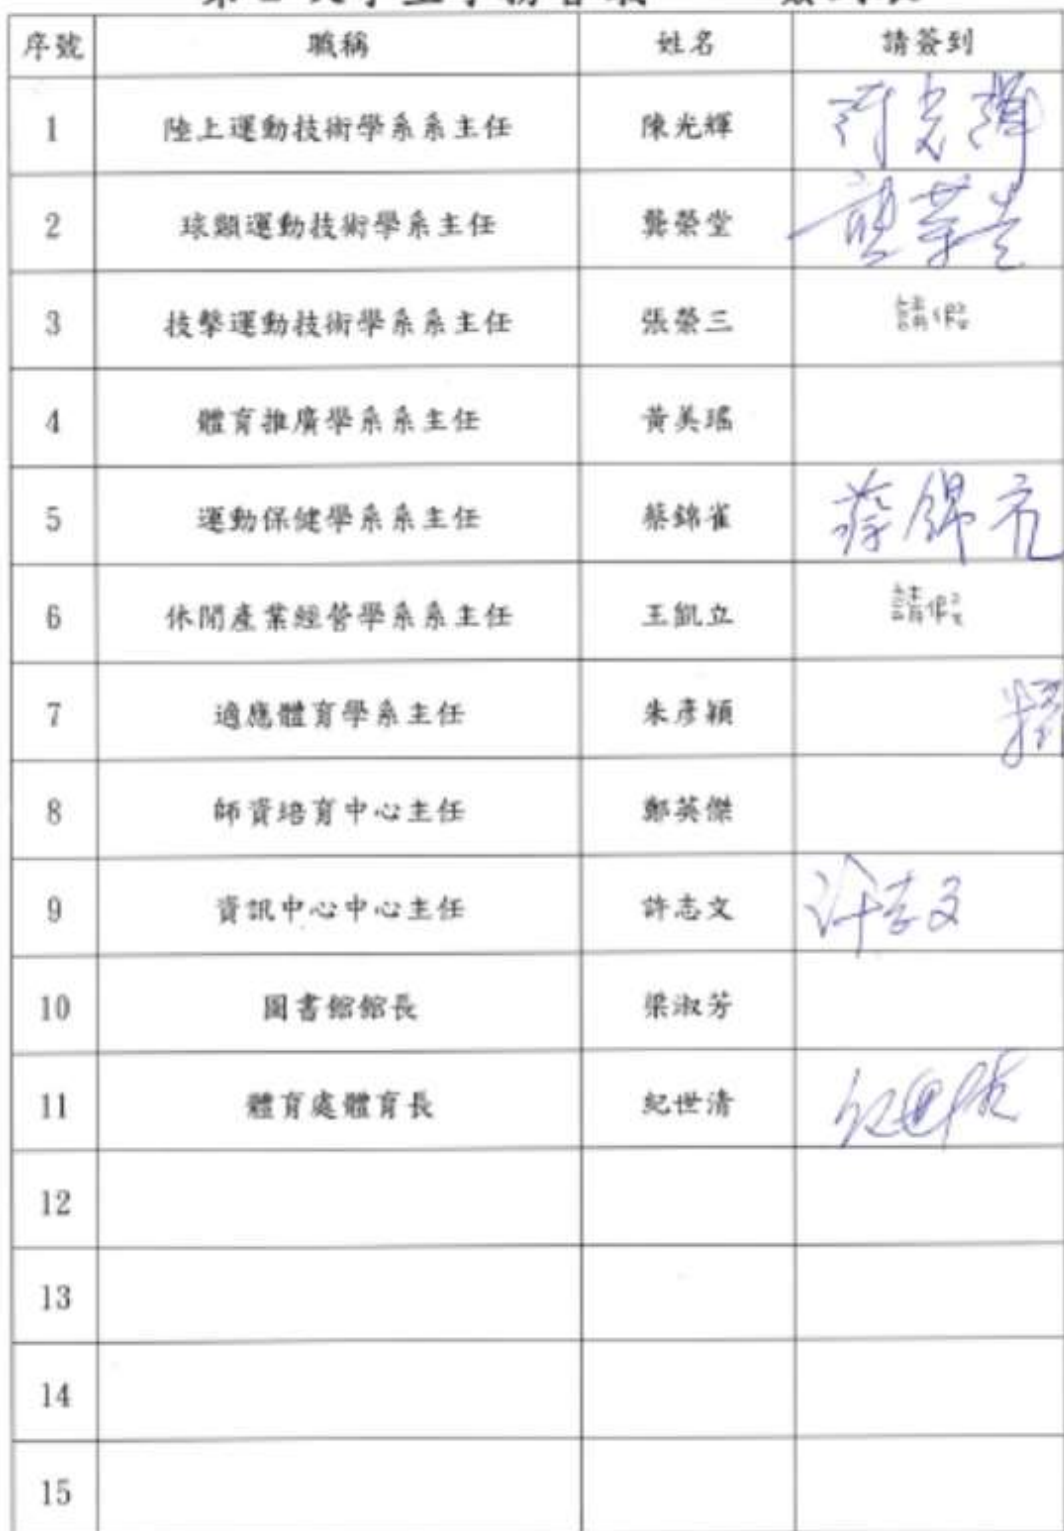 序號 職稱 姓名 請簽到
1 陸上運動技術學系系主任 陳光輝
2 球類運動技術學系主任 龔榮堂 龔榮堂
3 技擊運動技術學系系主任 張榮三 請假
4 體育推廣學系系主任 黃美瑤
5 運動保健學系系主任 蔡錦雀 蔡錦雀
6 休閒產業經營學系系主任 王凱立 請假
7 適應體育學系主任 朱彥穎
8 師資培育中心主任 鄭英傑
9 資訊中心中心主任 許志文 許志文
10 圖書館館長 梁淑芳
11 體育處體育長 紀世清 紀世清
12
13
14
15